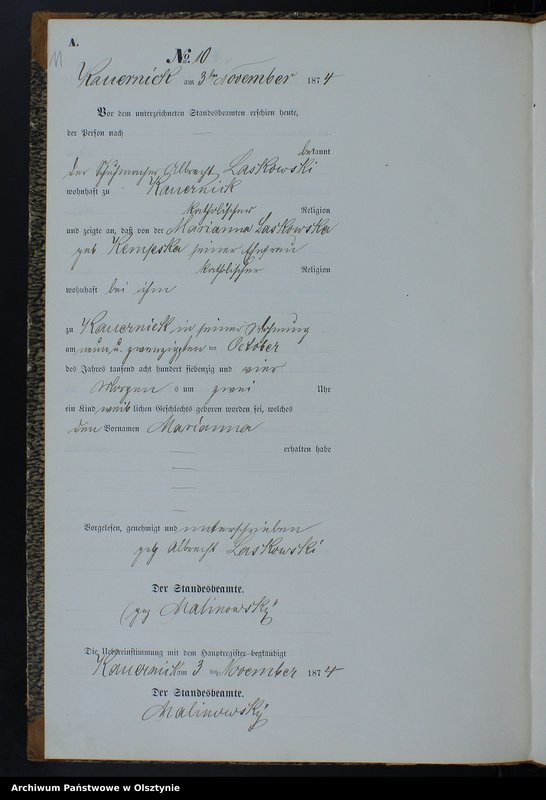 A.
11
No. 10
Kauernick am 3ten November 1874
Vor dem unterzeichneten Standesbeamten erschien heute,
der Person nach
bekannt
der Schuhmacher Albrecht Laskowski
wohnhaft zu Kauernick
katholischer Religion
und zeigte an, daß von der Marianna Laskowska
geb Kempska seiner Ehefrau
katholischer Religion
wohnhaft bei ihm
zu Kauernick in seiner Wohnung
am neun u. zwanzigsten ten October
des Jahres tausend acht hundert siebenzig und vier
Morgens um zwei Uhr
ein Kind weiblichen Geschlechts geboren worden sei, welches
den Vornamen Marianna
erhalten habe
Vorgelesen, genehmigt und unterschrieben
gez Albrecht Laskowski
Der Standesbeamte.
(gez Malinowsky
Die Uebereinstimmung mit dem Hauptregister beglaubigt
Kauernick am 3 ten November 1874
Der Standesbeamte.
Malinowsky
Archiwum Państwowe w Olsztynie